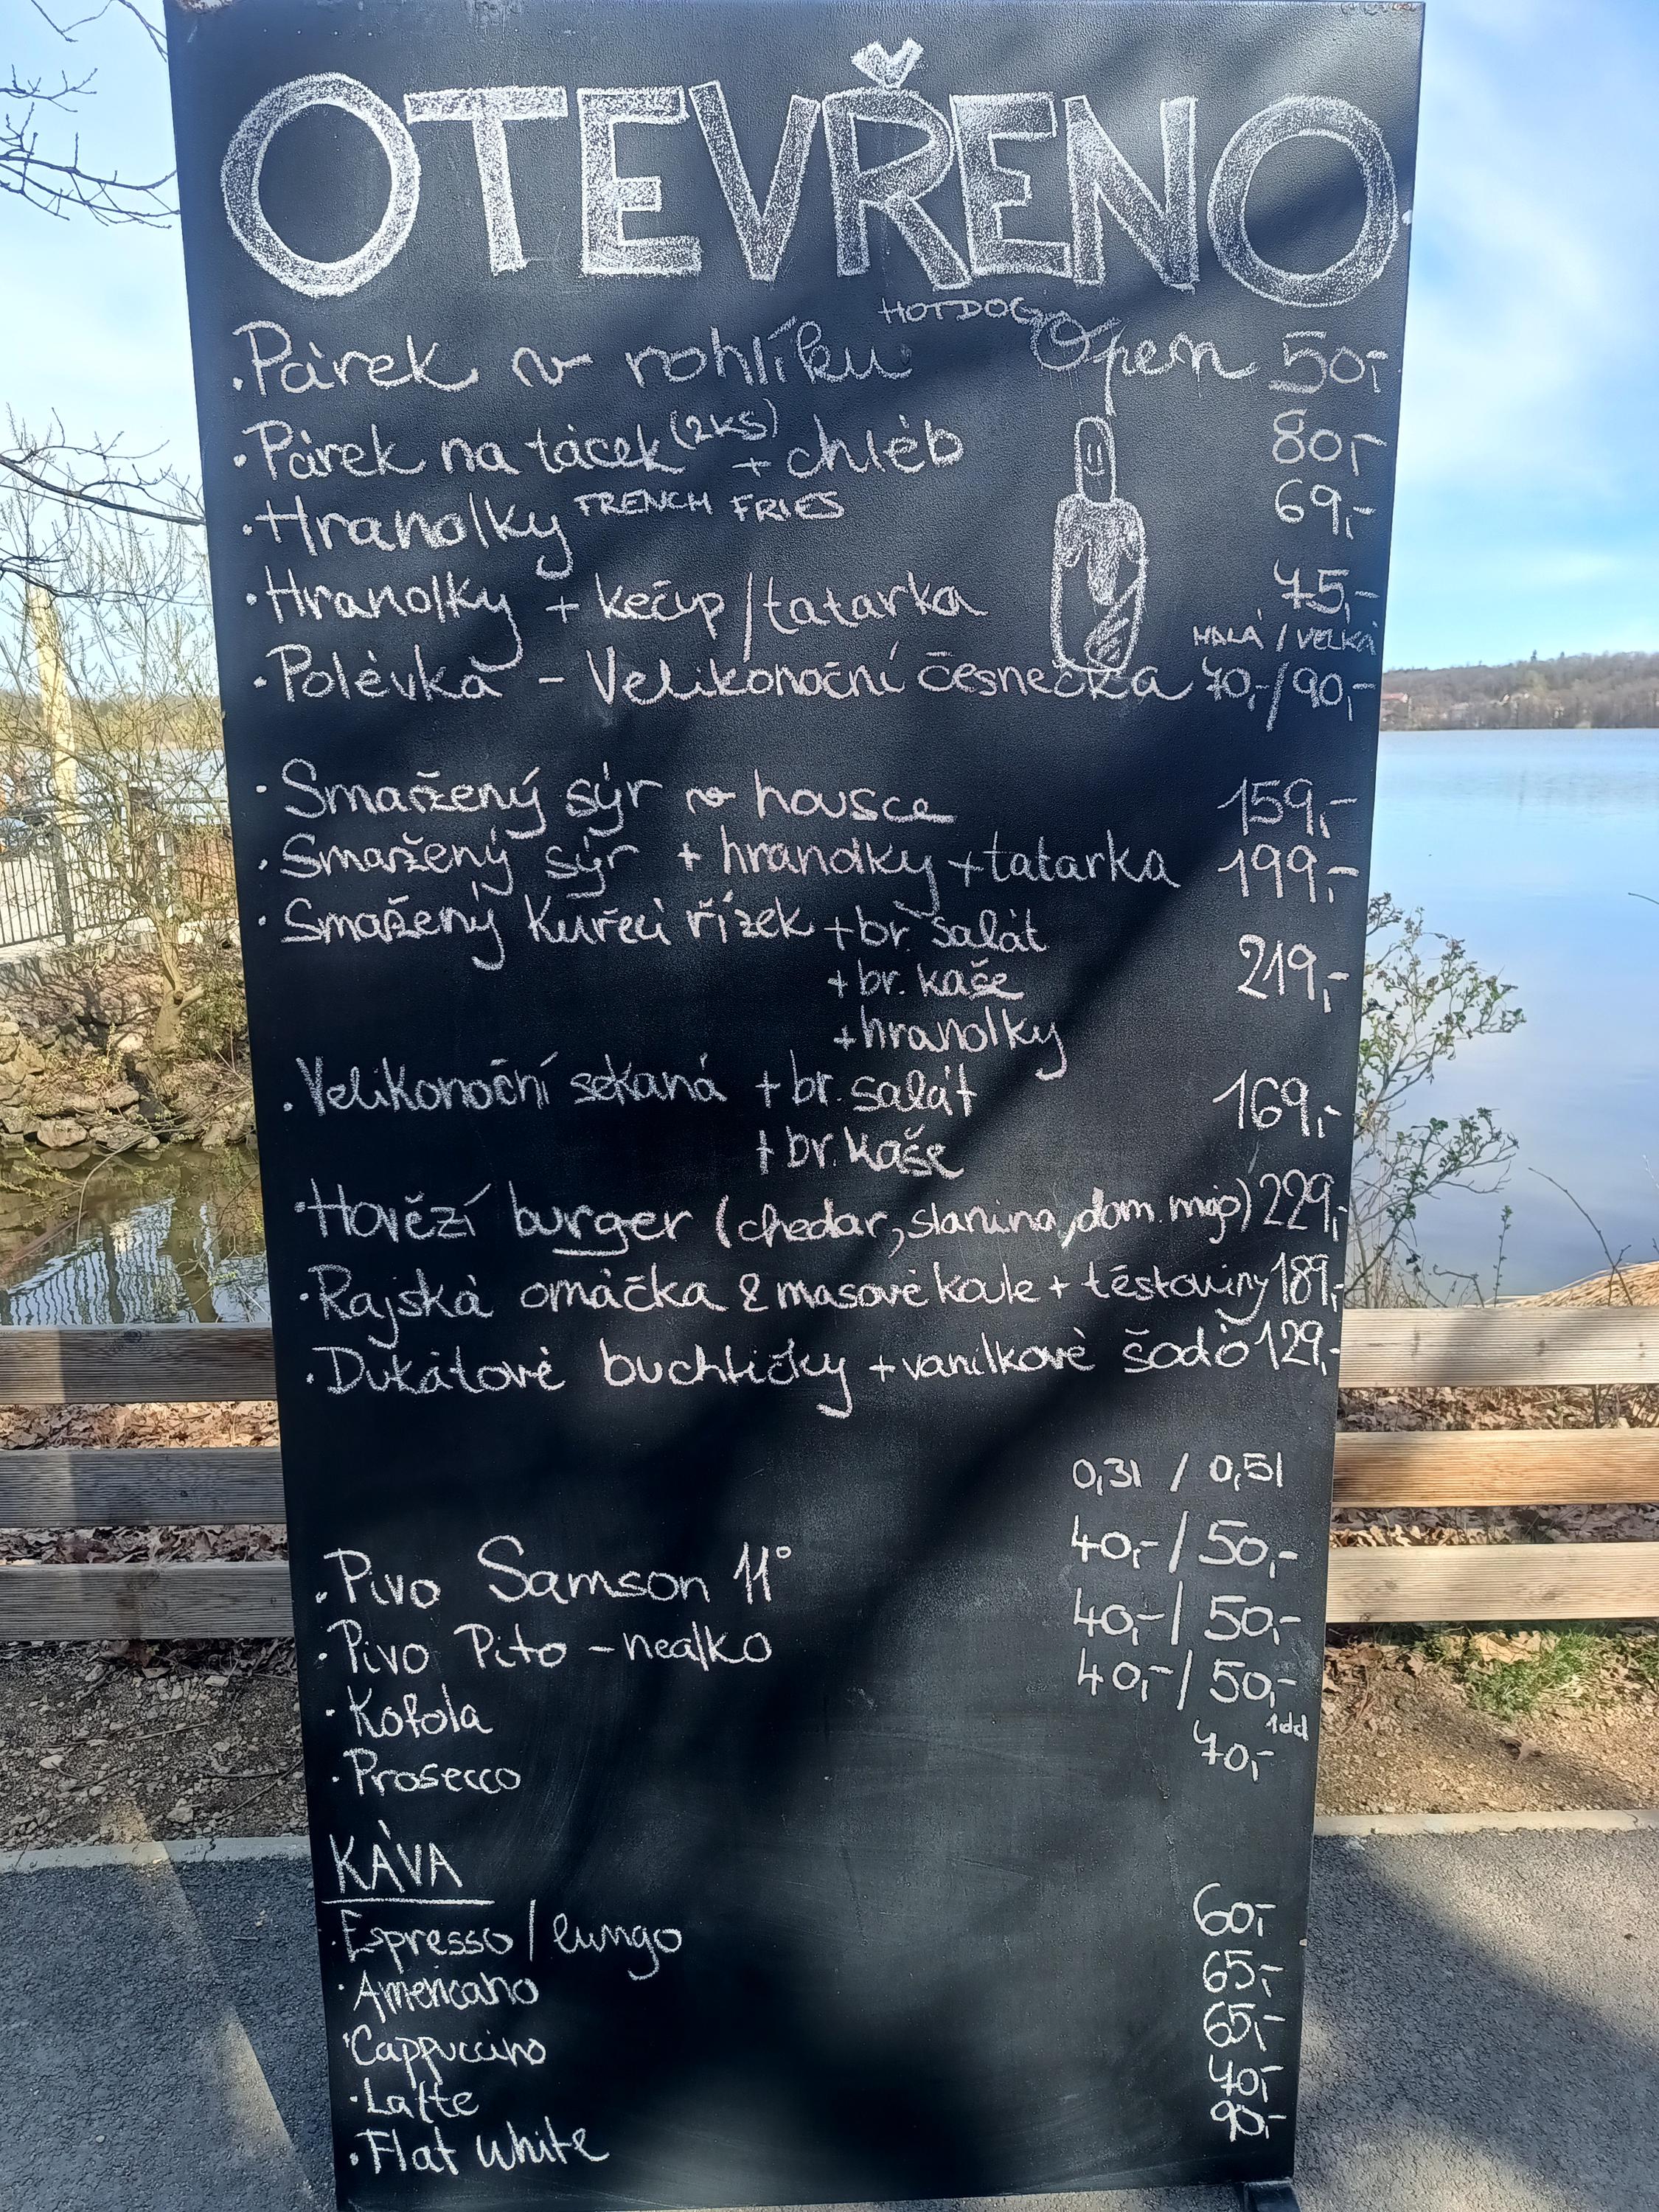 OTEVŘENO
• Párek v rohlíku HOTDOG Open 50,-
• Párek na tácek (2KS) + chléb 80,-
• Hranolky FRENCH FRIES 69,-
• Hranolky + kečup/tatarka 75,-
MALÁ / VELKÁ
• Polévka - Velikonoční česnečka 70,-/90,-
• Smažený sýr v housce 159,-
• Smažený sýr + hranolky + tatarka 199,-
• Smažený kuřecí řízek + br. salát
+ br. kaše 219,-
+ hranolky
• Velikonoční sekaná + br. salát 169,-
+ br. kaše
• Hovězí burger (chedar, slanina, dom. majo) 229,-
• Rajská omáčka & masové koule + těstoviny 189,-
• Dukátové buchtičky + vanilkové šodó 129,-
0,3l / 0,5l
• Pivo Samson 11° 40,-/ 50,-
• Pivo Pito - nealko 40,-/ 50,-
• Kofola 40,-/ 50,-
• Prosecco 70,- 1dcl
KÁVA
• Espresso / lungo 60,-
• Americano 65,-
• Cappuccino 65,-
• Latte 70,-
• Flat white 90,-